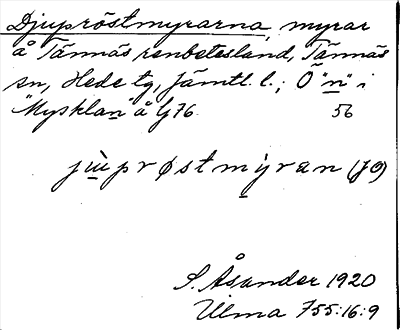 Djupröstmyrarna, myrar
å Tännäs renbetesland, Tännäs
sn, Hede tg, Jämtl. l.; Ö "n" i
"Mysklan" å Gj 76. 56
jùprøstmỳran (JÖ)
S. Åsander 1920
Ulma 755:16:9